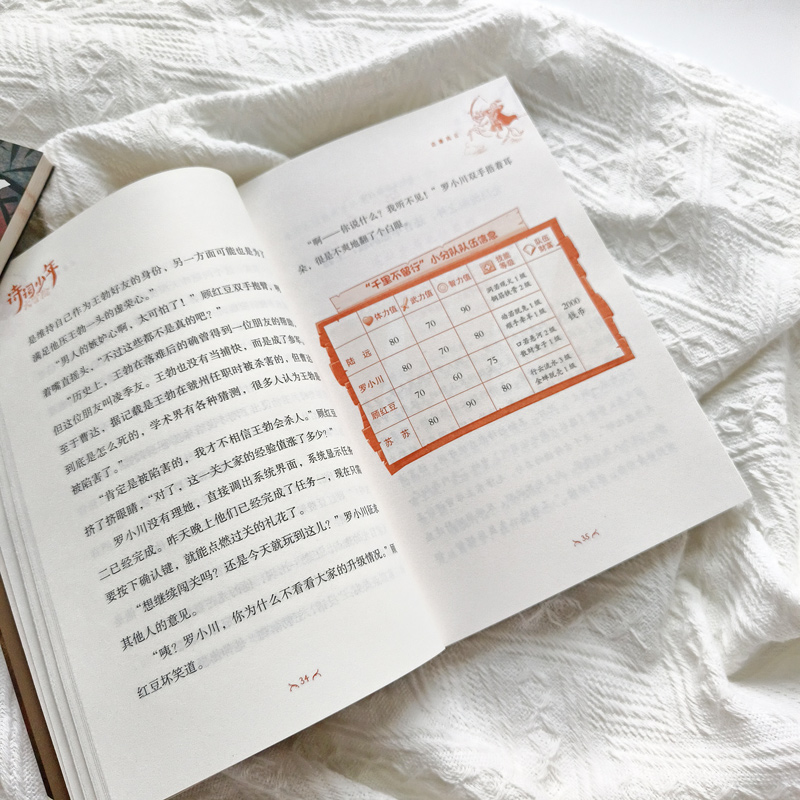 诗词少年
是维持自己作为王勃好友的身份，另一方面可能也是为了
满足他压王勃一头的虚荣心。”
“男人的嫉妒心啊，太可怕了！”顾红豆双手抱臂，噘
着嘴直摇头，“不过这些都不是真的吧？”
“历史上，王勃在落难后的确曾得到一位朋友的帮助，
但这位朋友叫凌季友。王勃也没有当捕快，而是成了参军。
至于曹达，据记载是王勃在虢州任职时被杀害的，但曹达
到底是怎么死的，学术界有各种猜测，很多人认为王勃是
被陷害了。”
“肯定是被陷害的，我才不相信王勃会杀人。”顾红豆
挤了挤眼睛，“对了，这一关大家的经验值涨了多少？”
罗小川没有理她，直接调出系统界面，系统显示任务
二已经完成。昨天晚上他们已经完成了任务一，现在只需
要按下确认键，就能点燃过关的礼花了。
“想继续闯关吗？还是今天就玩到这儿？”罗小川征求
其他人的意见。
“咦？罗小川，你为什么不看看大家的升级情况。”顾
红豆坏笑道。
34
“啊——你说什么？我听不见！”罗小川双手捂着耳
朵，很是不爽地翻了个白眼。
“千里不留行”小分队队伍信息
体力值 武力值 智力值 技能等级 队伍财富
陆远 80 70 90 洞若观火1级 钢筋铁骨2级 2000钱币
罗小川 80 70 80 动若脱兔1级 顺手牵羊1级
顾红豆 70 60 75 口若悬河2级 散财童子1级
苏苏 80 90 80 行云流水3级 金蝉脱壳1级
35